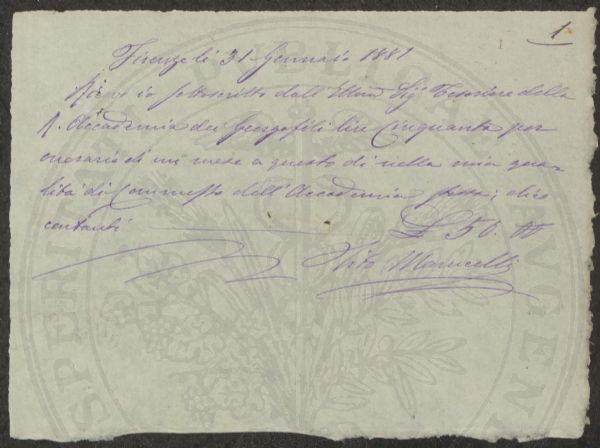 1
Firenze li 31 Gennaio 1881
io sottoscritto dall' Sig Tesoriere della
R. Accademia dei Georgofili lire Cinquanta per
onorario di un mese a questo di nella mia qua
lità di Commesso dell'Accademia dico
contanti £ 50. 00
Vito